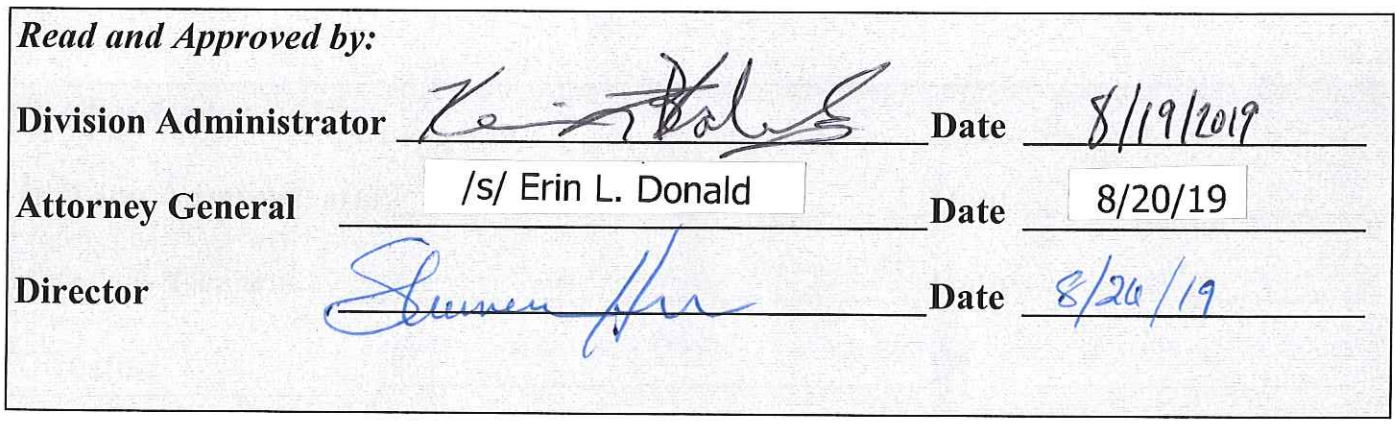 Read and Approved by:
Division Administrator Date 8/19/2019
Attorney General /s/ Erin L. Donald Date 8/20/19
Director Date 8/26/19